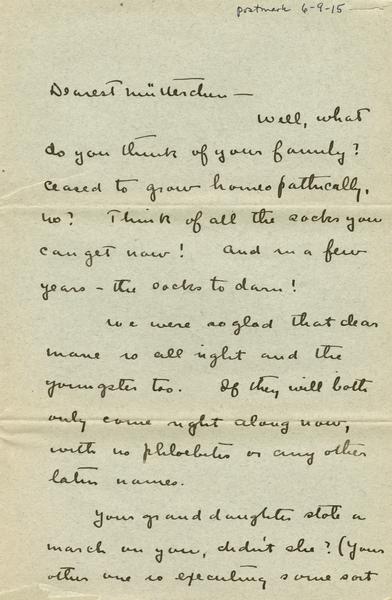 postmark 6-9-15
Dearest Mütterchen —
Well, what
do you think of your family?
Ceased to grow homeopathically,
no? Think of all the socks you
can get now! And in a few
years - the socks to darn!
We were so glad that dear
Marie is all right and the
youngster too. If they will both
only come right along now,
with no phloebites or any other
latin names.
Your granddaughter stole a
march on you, didn't she? (Your
other one is executing some sort